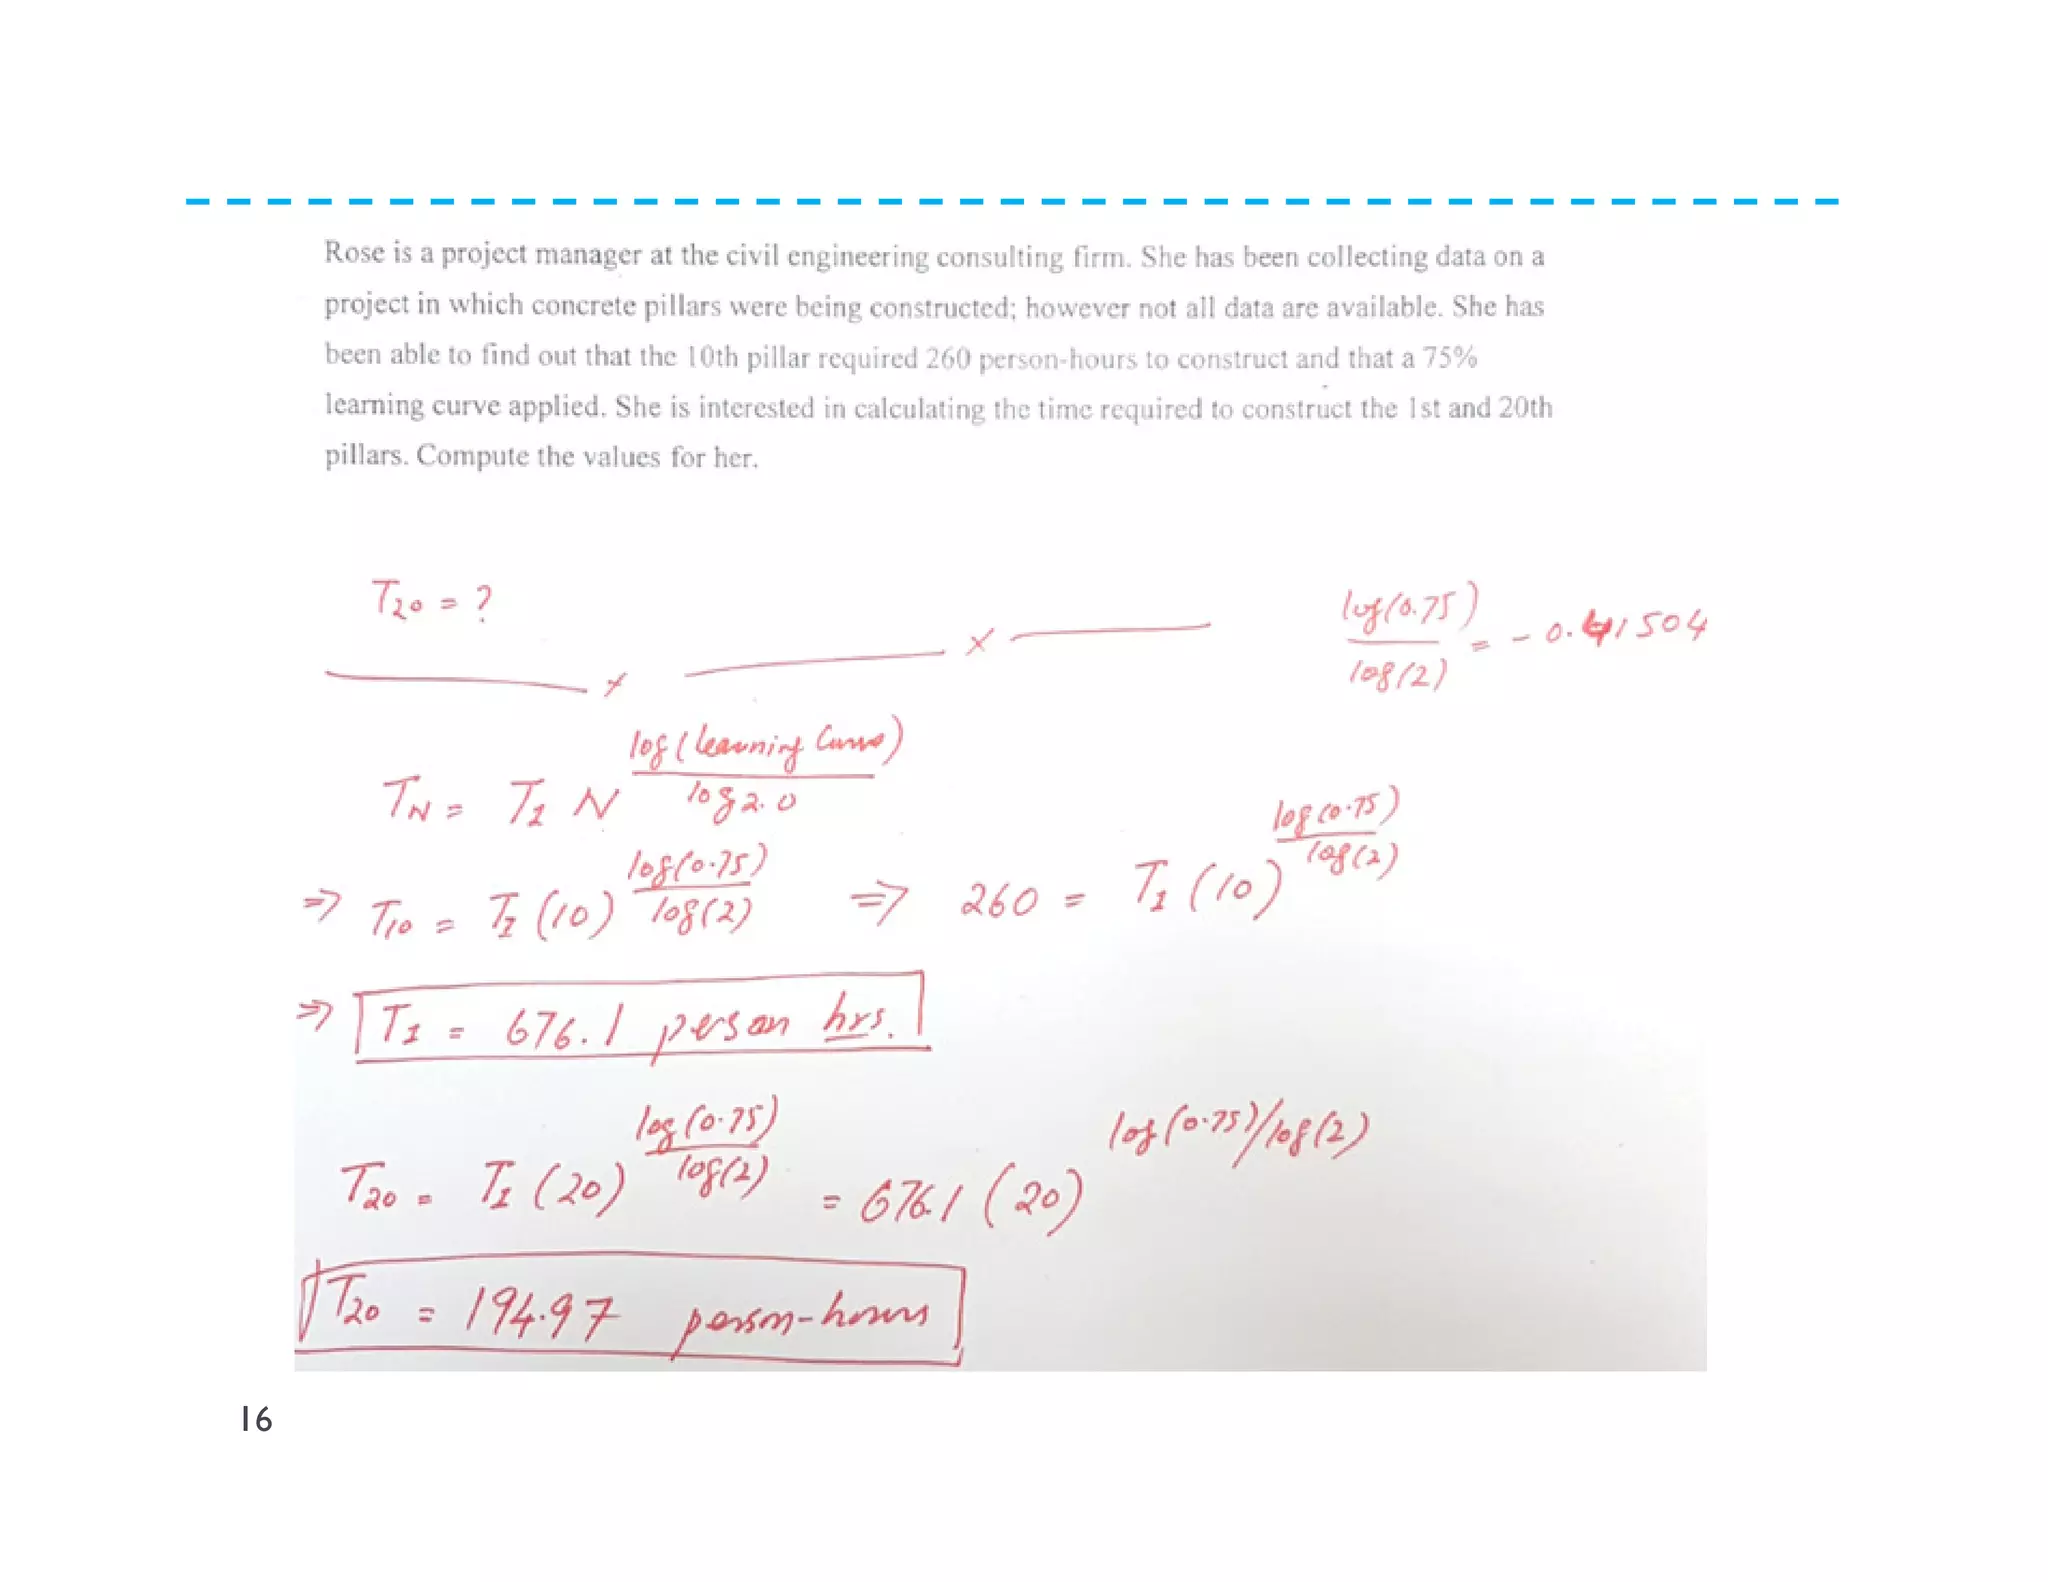 Rose is a project manager at the civil engineering consulting firm. She has been collecting data on a
project in which concrete pillars were being constructed; however not all data are available. She has
been able to find out that the 10th pillar required 260 person-hours to construct and that a 75%
learning curve applied. She is interested in calculating the time required to construct the 1st and 20th
pillars. Compute the values for her.
T20 = ?
log(0.75) / log(2) = - 0.41504
TN = T1 N log(learning curve) / log 2.0
⇒ T10 = T1 (10) log(0.75) / log(2) ⇒ 260 = T1 (10) log(0.75) / log(2)
⇒ T1 = 676.1 person hrs.
T20 = T1 (20) log(0.75) / log(2) = 676.1 (20) log(0.75)/log(2)
T20 = 194.97 person-hours
16